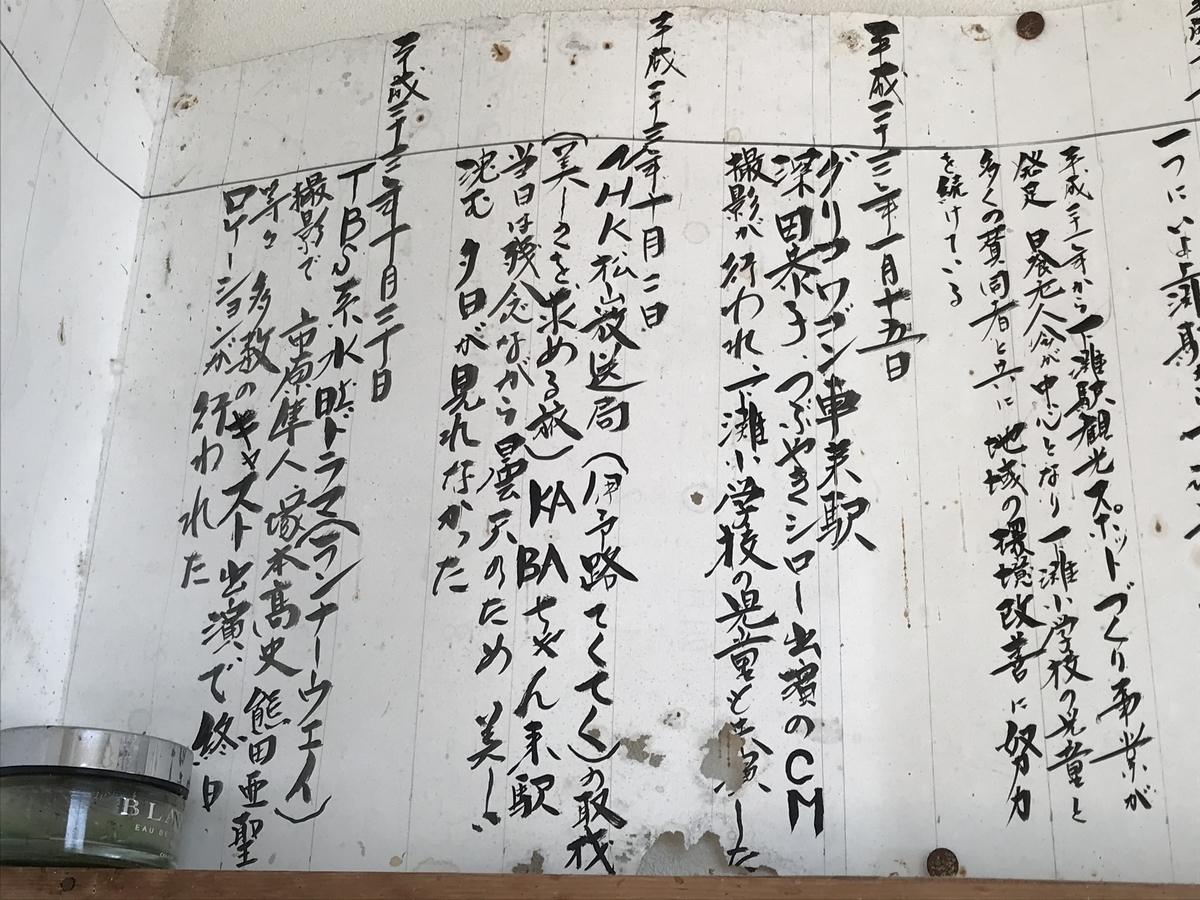 一つにいよ灘駅
平成二十一年から下灘駅観光スポットづくり事業が
発足 日喰老人会が中心となり下灘小学校の児童と
多くの賛同者と共に地域の環境改善に努力
を続けている
平成二十三年一月十五日
グリコワゴン車来駅
深田恭子、つぶやきシロー出演のCM
撮影が行われ、下灘小学校の児童と共演した
平成二十三年十月二日
NHK松山放送局(伊予路てくてく)の取材
(美しさを求める旅)KABAちゃん来駅
当日は残念ながら曇天のため 美しい
沈む夕日が見れなかった
平成二十三年十月二十日
TBS系水ドラマ(ランナーウェイ)
撮影で 市原隼人 塚本高史 熊田亜聖
等々 多数のキャスト出演で終日
ロケーションが行われた
BLA
EAU DE